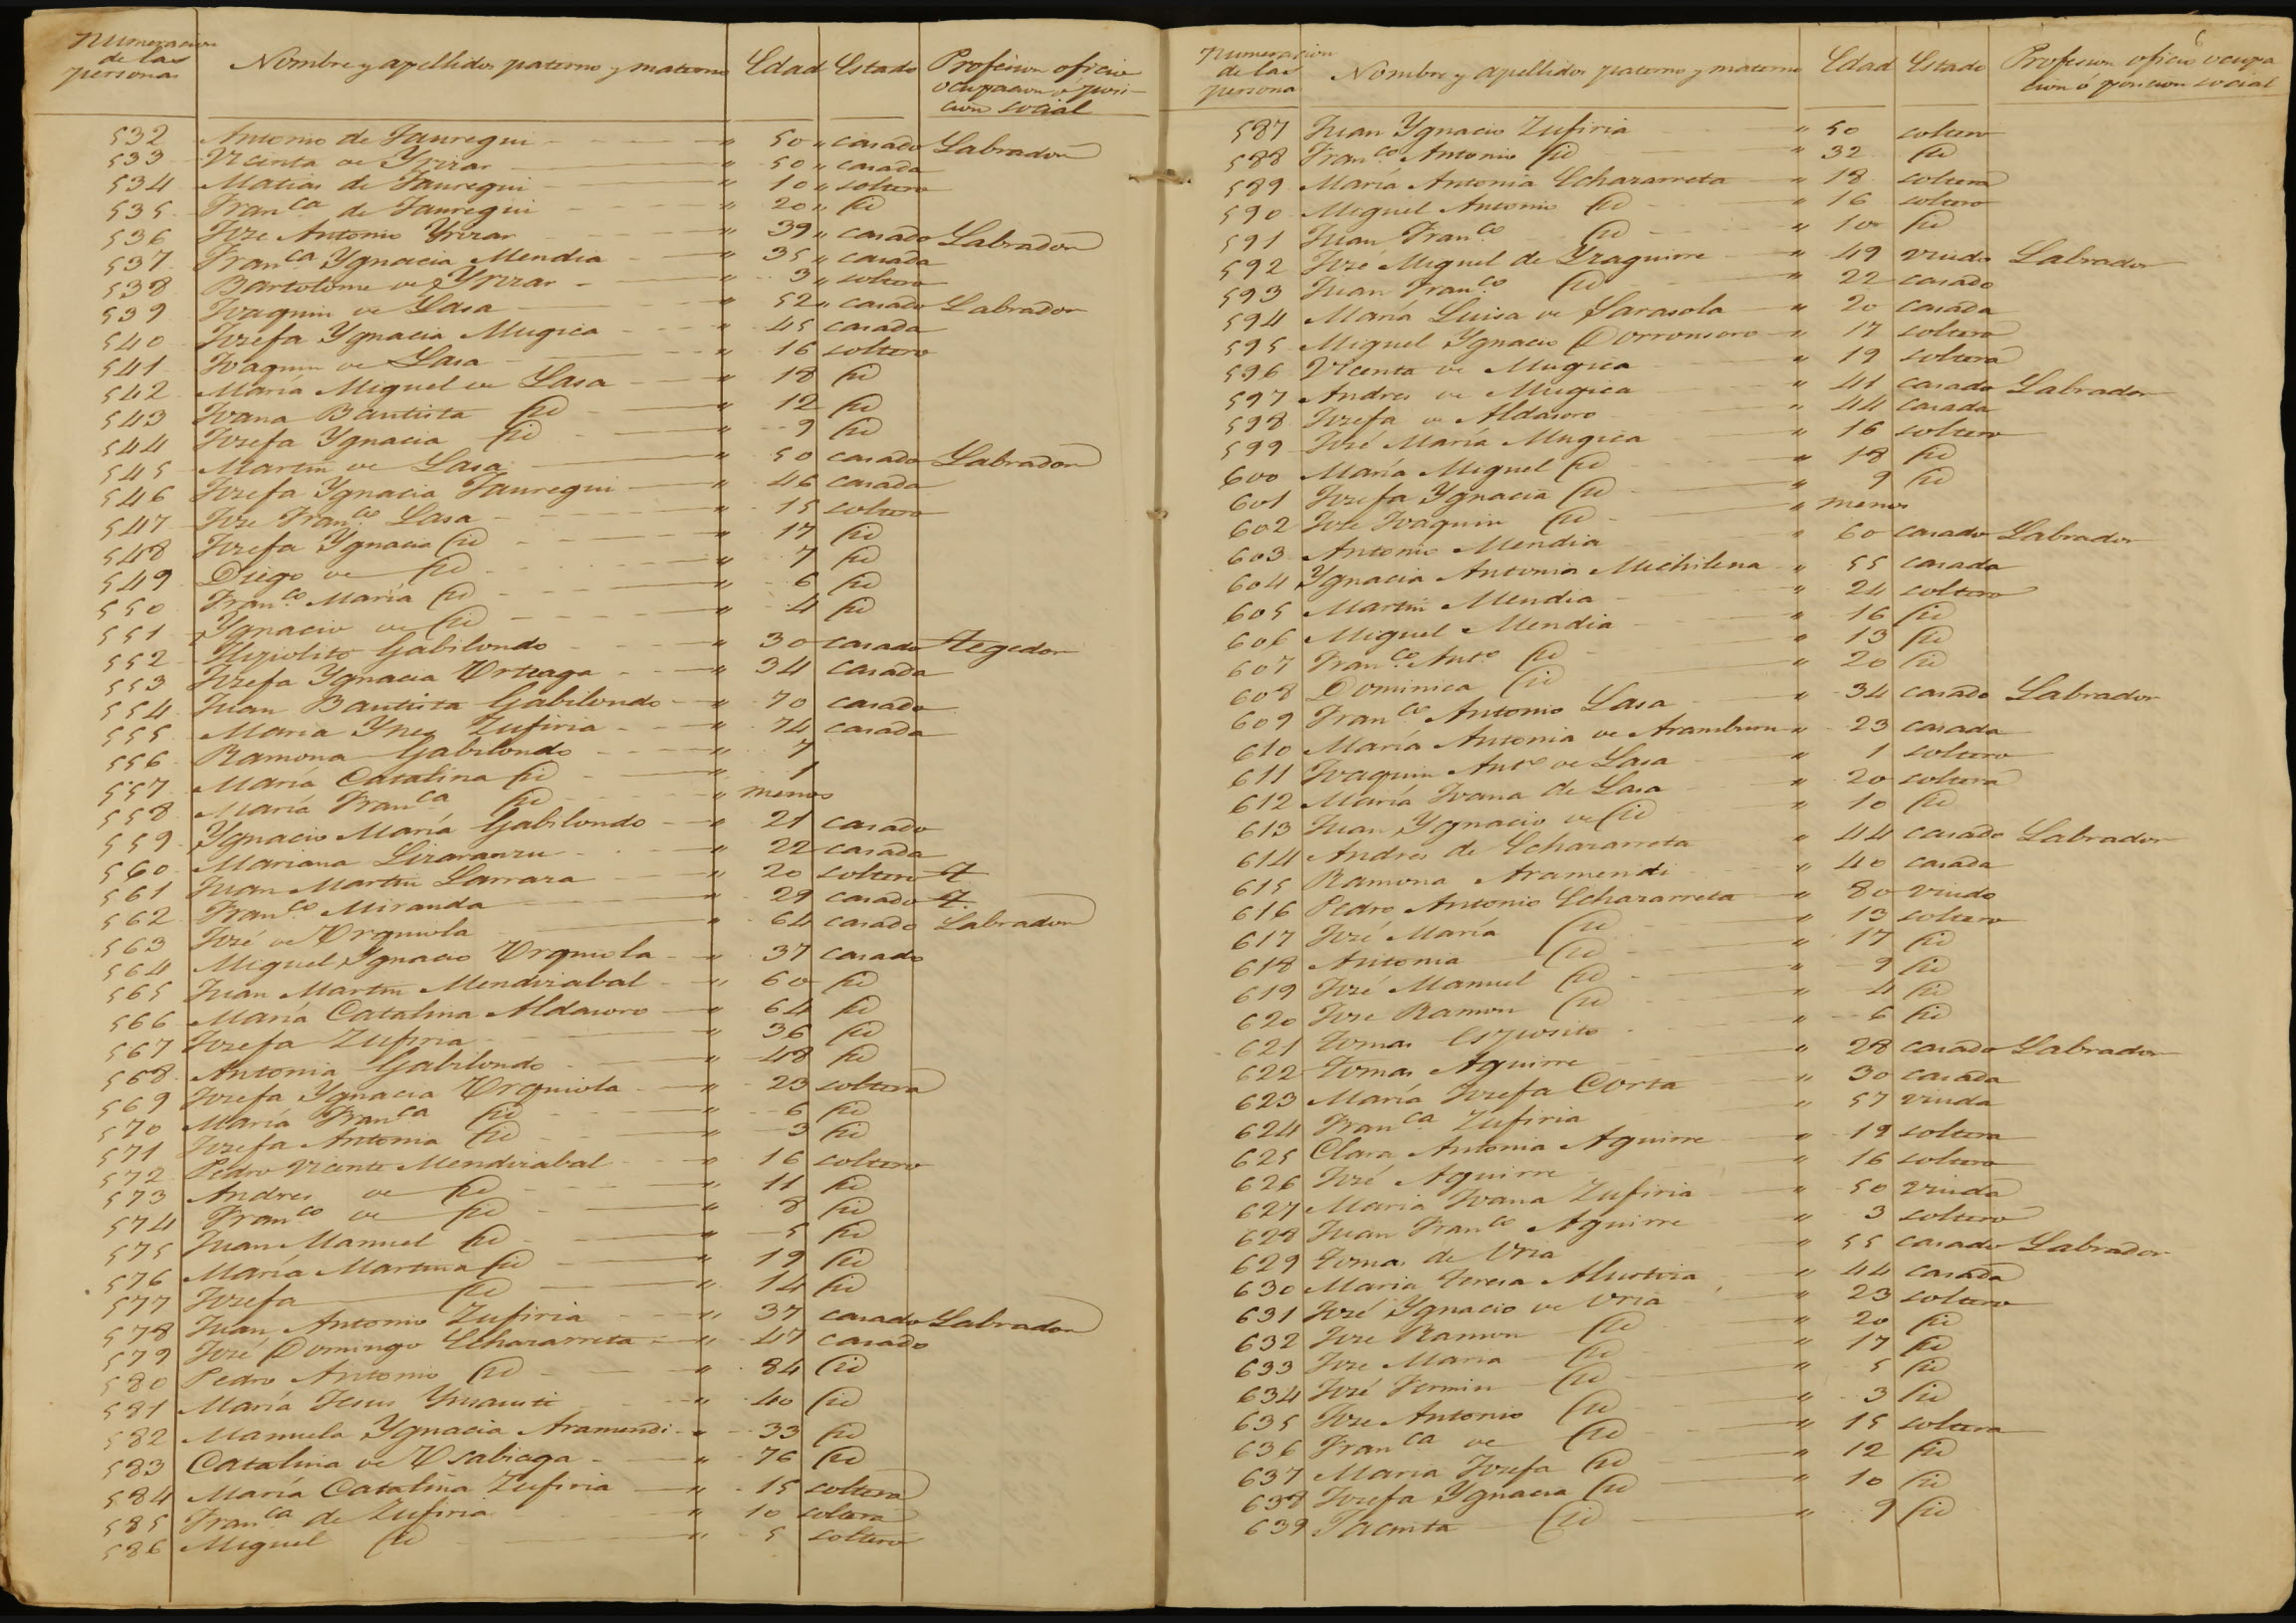 Numeracion de las personas	Nombre y apellidos paterno y materno	Edad	Estado	Profesion oficio ocupacion o posicion social
532 Antonio de Jauregui " 50 " casado Labrador
533 Vicenta de Yrizar " 50 " casada
534 Matias de Jauregui " 10 " soltero
535 Fran.ca de Jauregui " 20 " id
536 Jose Antonio Yrizar " 39 " casado Labrador
537 Fran.ca Ygnacia Mendia " 35 " casada
538 Bartolome de Yrizar " 3 " soltero
539 Joaquin de Lasa " 52 " casado Labrador
540 Josefa Ygnacia Mugica " 45 casada
541 Joaquin de Lasa " 16 soltero
542 María Miguel de Lasa " 18 id
543 Joana Bautista id " 12 id
544 Josefa Ygnacia id " 9 id
545 Martin de Lasa " 50 casado Labrador
546 Josefa Ygnacia Jauregui " 46 casada
547 Jose Fran.co Lasa " 15 soltero
548 Josefa Ygnacia id " 17 id
549 Diego de id " 7 id
550 Fran.co María id " 6 id
551 Ygnacio de id " 4 id
552 Hipolito Gabilondo " 30 casado Tegedor
553 Josefa Ygnacia Orteaga " 34 casada
554 Juan Bautista Gabilondo " 70 casado
555 Maria Ynes Zufiria " 74 casada
556 Ramona Gabilondo " 7
557 María Catalina id " 1
558 María Fran.ca id " menos
559 Ygnacio María Gabilondo " 21 casado
560 Mariana Lizaranzu " 22 casada
561 Juan Martin Larraza " 20 soltero T
562 Fran.co Miranda " 29 casado T.
563 José de Orquiola " 64 casado Labrador
564 Miguel Ygnacio Orquiola " 37 casado
565 Juan Martin Mendizabal " 60 id
566 María Catalina Aldasoro " 64 id
567 Josefa Zufiria " 36 id
568 Antonia Gabilondo " 48 id
569 Josefa Ygnacia Orquiola " 23 soltera
570 María Fran.ca id " 6 id
571 Josefa Antonia id " 3 id
572 Pedro Vicente Mendizabal " 16 soltero
573 Andres de id " 11 id
574 Fran.co de id " 8 id
575 Juan Manuel id " 5 id
576 María Martina id " 19 id
577 Josefa id " 14 id
578 Juan Antonio Zufiria " 37 casado Labrador
579 José Domingo Echazarreta " 47 casado
580 Pedro Antonio id " 84 id
581 María Jesus Ynsausti " 40 id
582 Manuela Ygnacia Aramendi " 33 id
583 Catalina de Usabiaga " 76 id
584 María Catalina Zufiria " 15 soltera
585 Fran.ca de Zufiria " 10 soltera
586 Miguel id " 5 soltero
Numeracion de las persona	Nombre y apellidos paterno y materno	Edad	Estado	Profesion oficio ocupacion ó posicion social
587 Juan Ygnacio Zufiria " 50 soltero
588 Fran.co Antonio id " 32 id
589 María Antonia Echazarreta " 18 soltera
590 Miguel Antonio id " 16 soltero
591 Juan Fran.co id " 10 id
592 José Miguel de Yzaguirre " 49 viudo Labrador
593 Juan Fran.co id " 22 casado
594 María Luisa de Sarasola " 20 casada
595 Miguel Ygnacio Dorronsoro " 17 soltero
596 Vicenta de Mugica " 19 soltera
597 Andres de Mugica " 41 casado Labrador
598 Josefa de Aldasoro " 44 casada
599 José María Mugica " 16 soltero
600 María Miguel id " 18 id
601 Josefa Ygnacia id " 9 id
602 Jose Joaquin id " menos
603 Antonio Mendia " 60 casado Labrador
604 Ygnacia Antonia Michilena " 55 casada
605 Martin Mendia " 24 soltero
606 Miguel Mendia " 16 id
607 Fran.co Ant.o id " 13 id
608 Dominica id " 20 id
609 Fran.co Antonio Lasa " 34 casado Labrador
610 María Antonia de Aramburu " 23 casada
611 Joaquin Ant.o de Lasa " 1 soltero
612 María Joana de Lasa " 20 soltera
613 Juan Ygnacio de id " 10 id
614 Andres de Echazarreta " 44 casado Labrador
615 Ramona Aramendi " 40 casada
616 Pedro Antonio Echazarreta " 80 viudo
617 José María id " 13 soltero
618 Antonia id " 17 id
619 José Manuel id " 9 id
620 Jose Ramon id " 4 id
621 Tomas Esposito " 6 id
622 Tomas Aguirre " 28 casado Labrador
623 María Josefa Corta " 30 casada
624 Fran.ca Zufiria " 57 viuda
625 Clara Antonia Aguirre " 19 soltera
626 José Aguirre " 16 soltero
627 Maria Joana Zufiria " 50 viuda
628 Juan Fran.co Aguirre " 3 soltero
629 Tomas de Uria " 55 casado Labrador
630 Maria Teresa Alustiza " 44 casada
631 José Ygnacio de Uria " 23 soltero
632 Jose Ramon id " 20 id
633 Jose Maria id " 17 id
634 José Fermin id " 5 id
635 Jose Antonio id " 3 id
636 Fran.ca de id " 15 soltera
637 Maria Josefa id " 12 id
638 Josefa Ygnacia id " 10 id
639 Jacinta id " 9 id